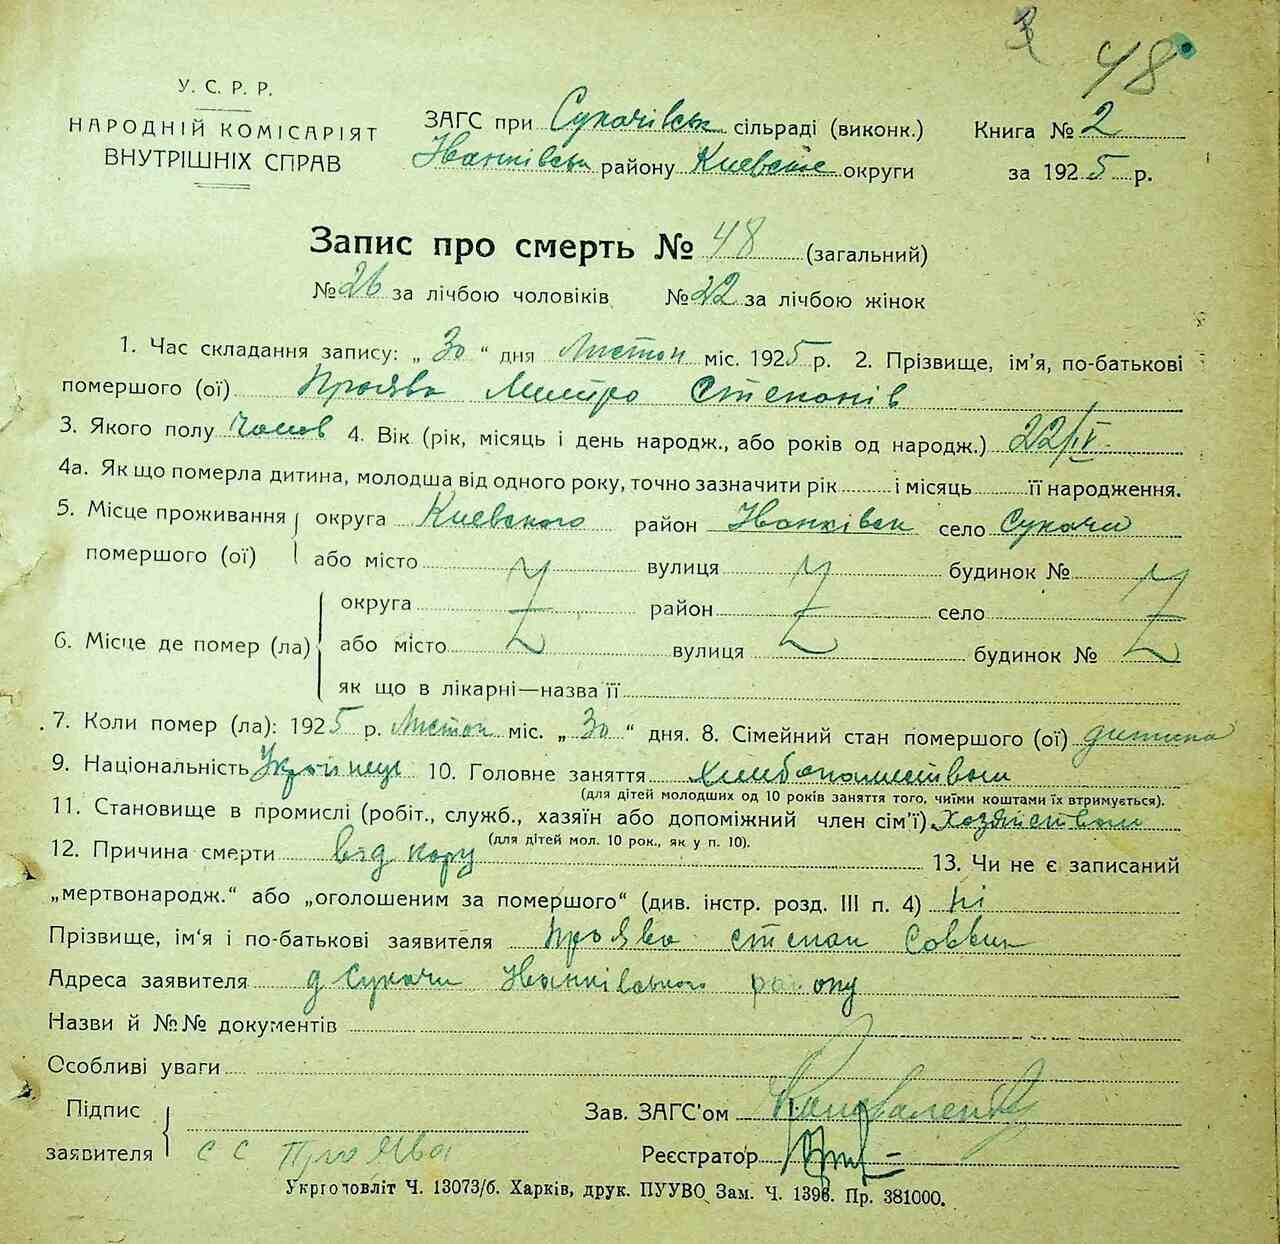 48
У. С. Р. Р.
НАРОДНІЙ КОМІСАРІЯТ
ВНУТРІШНІХ СПРАВ
ЗАГС при Сукачівськ сільраді (виконк.)
Іванківськ району Киевске округи
Книга № 2
за 1925 р.
Запис про смерть № 48 (загальний)
№ 26 за лічбою чоловіків № 22 за лічбою жінок
1. Час складання запису: „ 30 “ дня Листоп міс. 1925 р. 2. Прізвище, ім'я, по-батькові
помершого (ої) Проява Митро Степанів
3. Якого полу Чолов 4. Вік (рік, місяць і день народж., або років од народж.) 22/IV
4а. Як що померла дитина, молодша від одного року, точно зазначити рік і місяць її народження.
5. Місце проживання округа Киевского район Іванківск село Сукачи
помершого (ої) або місто вулиця будинок №
округа район село
6. Місце де помер (ла) або місто вулиця будинок №
як що в лікарні—назва її
7. Коли помер (ла): 1925 р. Листоп міс. „ 30 “ дня. 8. Сімейний стан помершого (ої) дитина
9. Національність Українець 10. Головне заняття хлибопашеством
(для дітей молодших од 10 років заняття того, чиїми коштами їх втримується).
11. Становище в промислі (робіт., служб., хазяїн або допоміжний член сім'ї) Хозяйством
(для дітей мол. 10 рок., як у п. 10).
12. Причина смерти від кору 13. Чи не є записаний
„мертвонародж.“ або „оголошеним за помершого“ (див. інстр. розд. III п. 4) Ні
Прізвище, ім'я і по-батькові заявителя Проява степан Саввич
Адреса заявителя д Сукачи Іванківского району
Назви й №№ документів
Особливі уваги
Підпис
заявителя С С Проява
Зав. ЗАГС'ом Коноваленко
Реєстратор
Укрголовліт Ч. 13073/б. Харків, друк. ПУУВО Зам. Ч. 1396. Пр. 381000.